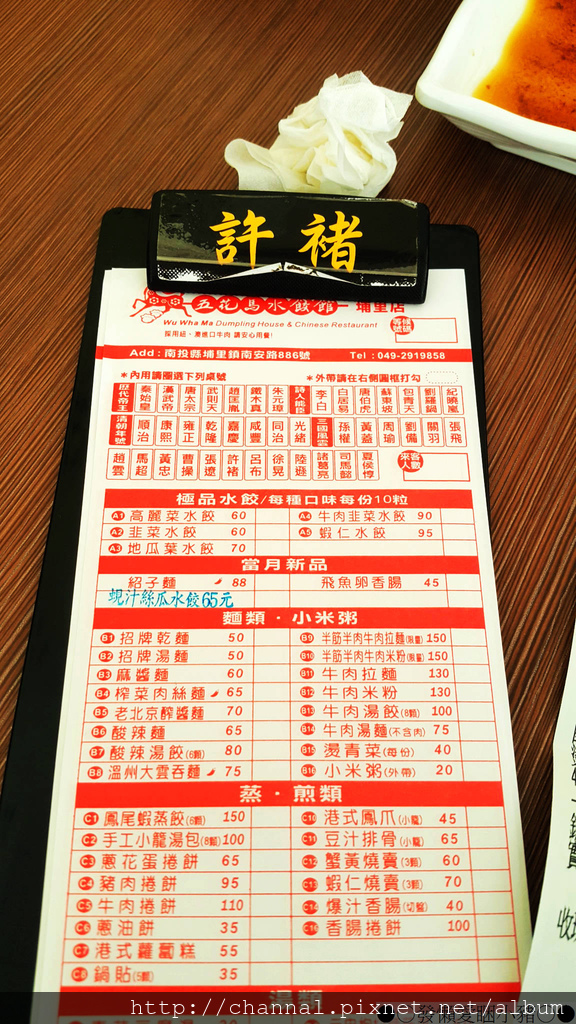 許褚
五花馬水餃館 埔里店
Wu Wha Ma Dumpling House & Chinese Restaurant
採用紐、澳進口牛肉 請安心用餐!
Add：南投縣埔里鎮南安路886號 Tel：049-2919858
＊內用請圈選下列桌號 ＊外帶請在右側圖框打勾
歷代帝王 秦始皇 漢武帝 唐太宗 武則天 趙匡胤 鐵木真 朱元璋 詩人能臣 李白 白居易 唐伯虎 蘇東坡 包青天 劉羅鍋 紀曉嵐
清朝年號 順治 康熙 雍正 乾隆 嘉慶 咸豐 同治 光緒 三國風雲 孫權 黃蓋 周瑜 劉備 關羽 張飛
趙雲 馬超 黃忠 曹操 張遼 許褚 呂布 徐晃 陸遜 諸葛亮 司馬懿 夏侯惇 來客人數
極品水餃/每種口味每份10粒
A1 高麗菜水餃 60 A4 牛肉韭菜水餃 90
A2 韭菜水餃 60 A5 蝦仁水餃 95
A3 地瓜葉水餃 70
當月新品
紹子麵 88 飛魚卵香腸 45
蜆汁絲瓜水餃65元
麵類・小米粥
B1 招牌乾麵 50 B9 半筋半肉牛肉拉麵(限量) 150
B2 招牌湯麵 50 B10 半筋半肉牛肉米粉(限量) 150
B3 麻醬麵 60 B11 牛肉拉麵 130
B4 榨菜肉絲麵 65 B12 牛肉米粉 130
B5 老北京醡醬麵 70 B13 牛肉湯餃(8顆) 100
B6 酸辣麵 65 B14 牛肉湯麵(不含肉) 75
B7 酸辣湯餃(6顆) 80 B15 燙青菜(每份) 40
B8 溫州大雲吞麵 75 B16 小米粥(外帶) 20
蒸・煎類
C1 鳳尾蝦蒸餃(6顆) 150 C10 港式鳳爪(小籠) 45
C2 手工小籠湯包(8顆) 100 C11 豆汁排骨(小籠) 65
C3 蔥花蛋捲餅 65 C12 蟹黃燒賣(3顆) 60
C4 豬肉捲餅 95 C13 蝦仁燒賣(3顆) 70
C5 牛肉捲餅 110 C14 爆汁香腸(切盤) 40
C6 蔥油餅 35 C15 香腸捲餅 100
C7 港式蘿蔔糕 55
C8 鍋貼(5顆) 35
湯類
http://channal.pixnet.net/album